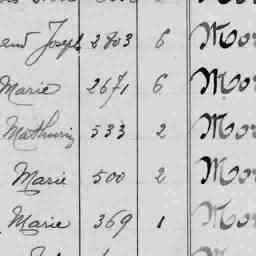 Joseph 2803 6 Mor
Marie 2671 6 Mor
Mathurin 533 2 Mor
Marie 500 2 Mor
Marie 369 1 Mor